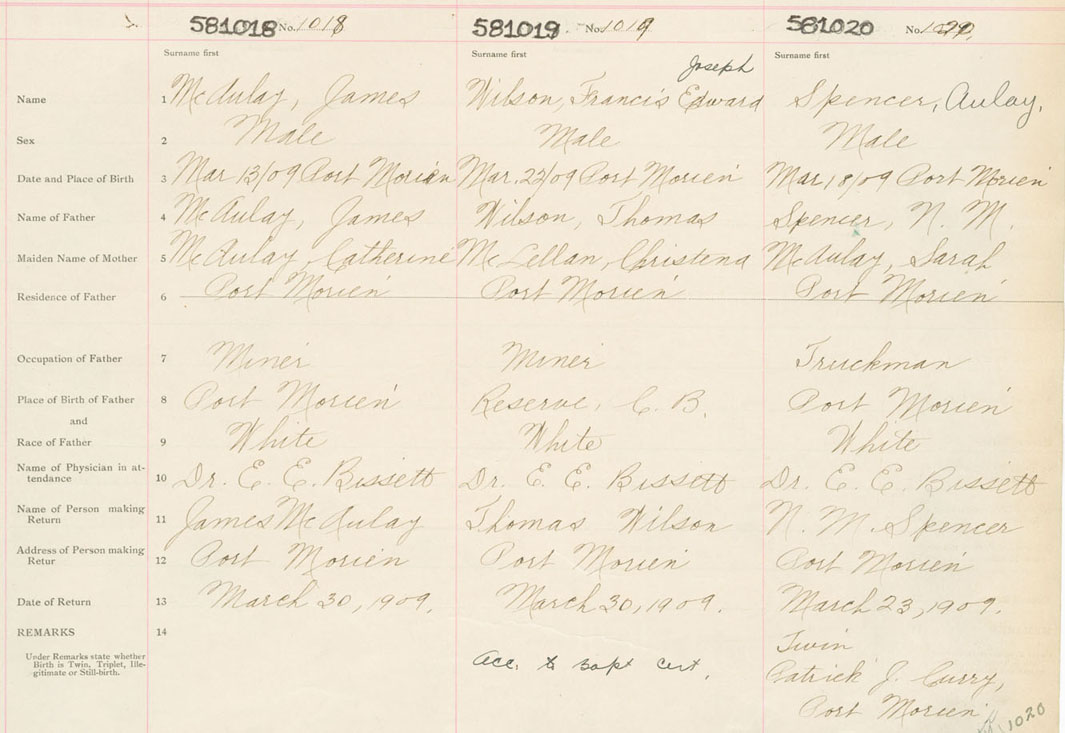 581018 No. 1018 581019 No. 1019 581020 No.
Surname first Surname first Surname first
Joseph
Name 1 McAulay, James Wilson, Francis Edward Spencer, Aulay,
Sex 2 Male Male Male
Date and Place of Birth 3 Mar 13/09 Port Morien Mar. 22/09 Port Morien Mar. 18/09 Port Morien
Name of Father 4 McAulay, James Wilson, Thomas Spencer, N. M.
Maiden Name of Mother 5 McAulay, Catherine McLellan, Christena McAulay, Sarah
Residence of Father 6 Port Morien Port Morien Port Morien
Occupation of Father 7 Miner Miner Truckman
Place of Birth of Father 8 Port Morien Reserve, C. B. Port Morien
and
Race of Father 9 White White White
Name of Physician in at-
tendance 10 Dr. E. E. Bissett Dr. E. E. Bissett Dr. E. E. Bissett
Name of Person making
Return 11 James McAulay Thomas Wilson N. M. Spencer
Address of Person making
Retur 12 Port Morien Port Morien Port Morien
Date of Return 13 March 30, 1909. March 30, 1909. March 23, 1909.
REMARKS 14 Twin
Under Remarks state whether
Birth is Twin, Triplet, Ille-
gitimate or Still-birth.
Acc. to bapt cert.
Patrick J. Curry,
Port Morien
1020